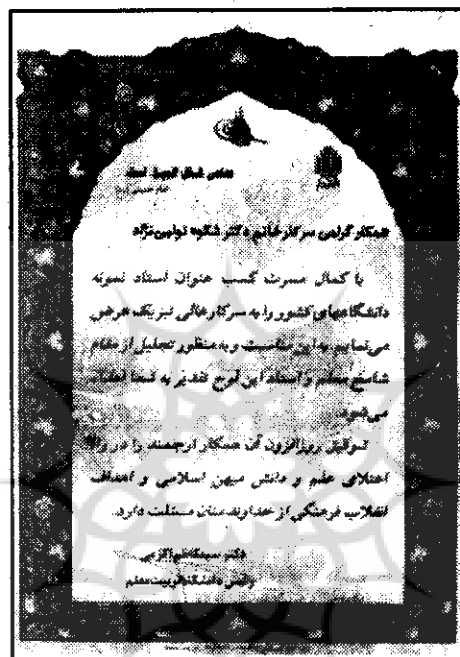 معلمی شغل انبیاء است
امام خمینی (ره)
همکار گرامی سرکار خانم دکتر شکوه نوابی‌نژاد
با کمال مسرت کسب عنوان استاد نمونه
دانشگاههای کشور را به سرکار عالی تبریک عرض
می‌نماییم به این مناسبت و به منظور تجلیل از مقام
شامخ معلم و استاد این لوح تقدیر به شما اهداء
می‌شود.
توفیق روزافزون آن همکار ارجمند را در راه
اعتلای علم و دانش میهن اسلامی و اهداف
انقلاب فرهنگی از خداوند منان مسئلت دارد.
دکتر سیدکاظم اکرمی
رئیس دانشگاه تربیت معلم